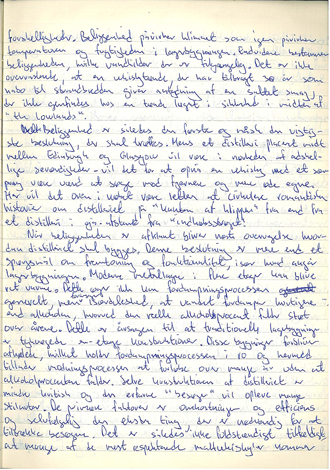 forskelligheder. Beliggenhed påvirker klimaet som igen påvirker
temperaturen og fugtigheden i lagerbygningen. Endvidere bestemmer
beliggenheden, hvilke vandkilder der er tilgængelig. Det er ikke
overraskende, at en whiskytønde, der har tilbragt 10 år som
nabo til strandbredden giver anledning af en saltet smag,
der ikke genfindes hos en tønde lagret i sikkerhed i midten af
"the Lowlands".
Beliggenhed er således den første og næsten den vigtigste
beslutning, der skal træffes. Mens et destilleri placeret midt
mellem Edinburgh og Glasgow vil være i nærheden af adskillige
seværdigheder - vil det for at opnå en whisky med et særpræg
være værd at søge mod fjernere og mere øde egne.
Her vil det oven i købet være lettere at cirkulere romantiske
historier om destilleriet på "kanten af klippen" fra end
et destilleri i gå-afstand fra "indkøbsstrøget".
Når beliggenheden er afklaret bliver næste overvejelse hvordan
destilleriet skal bygges. Denne beslutning er mere end et
spørgsmål om fremtoning og funktionalitet, især hvad angår
lagerbygningen. Moderne metallagre i flere etager kan blive
ret varme. Dette øger ikke kun fordampningsprocessen
generelt, men forårsager, at vandet fordamper hurtigere
end alkoholen, hvorved den reelle alkoholprocent falder støt
over årene. Dette er årsagen til at traditionelle lagerbygninger
er typisk en-etage konstruktioner. Disse bygninger forbliver
afkølede, hvilket holder fordampningsprocessen i ro og hermed
tillader modningsprocessen at forløbe over mange år uden at
alkoholprocenten falder. Selve konstruktionen af destilleriet er
mindre kritisk og den erfarne "besøger" vil opleve mange
stilarter. De primære faktorer er omkostninger og efficiens
og selvfølgelig den ekstra ting der er nødvendig for at
tiltrække besøgende. Det er således ikke fuldstændigt tilfældigt
at mange af de mest respekterede maltwhiskyer kommer